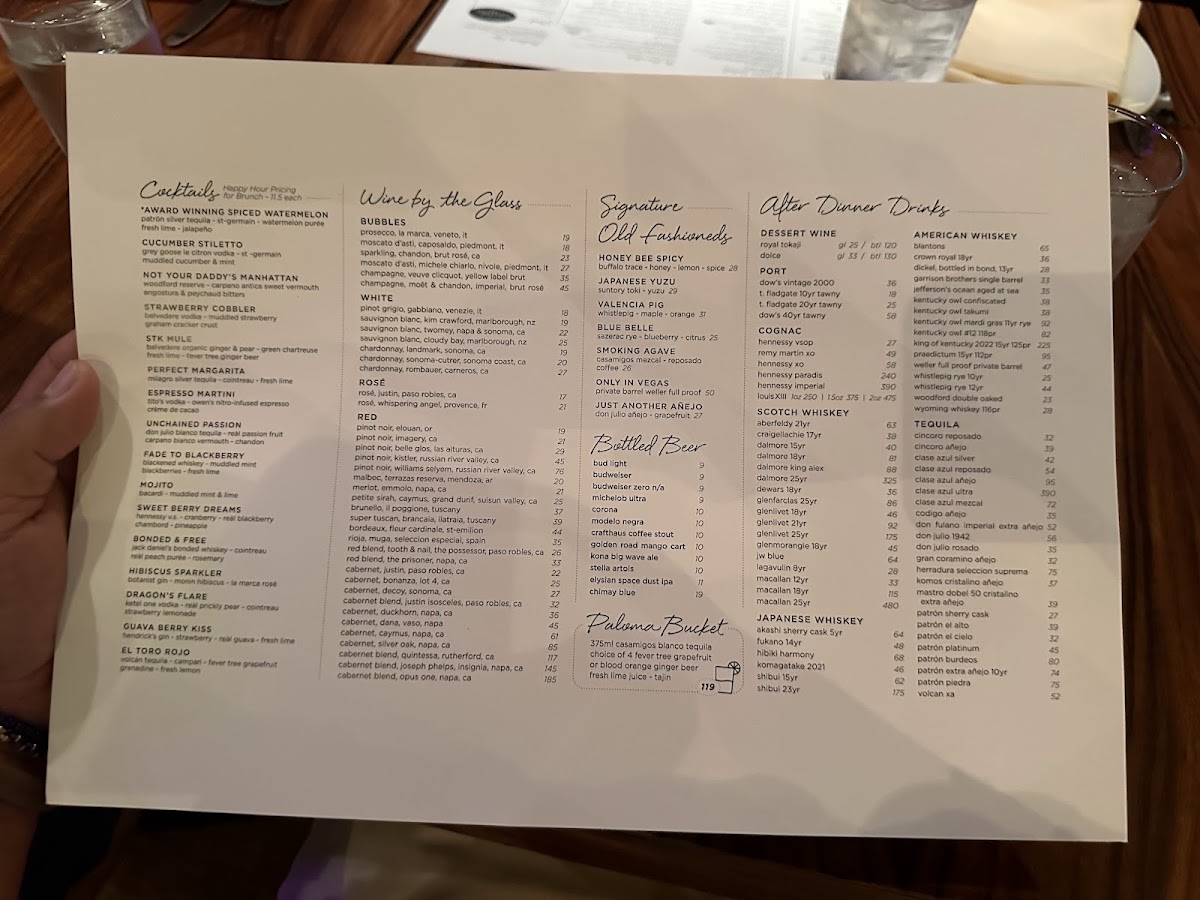 Cocktails
Happy Hour Pricing
for Brunch - 11.5 each
*AWARD WINNING SPICED WATERMELON
patrón silver tequila - st-germain - watermelon purée
fresh lime - jalapeño
CUCUMBER STILETTO
grey goose le citron vodka - st -germain
muddled cucumber & mint
NOT YOUR DADDY'S MANHATTAN
woodford reserve - carpano antica sweet vermouth
angostura & peychaud bitters
STRAWBERRY COBBLER
belvedere vodka - muddled strawberry
graham cracker crust
STK MULE
belvedere organic ginger & pear - green chartreuse
fresh lime - fever tree ginger beer
PERFECT MARGARITA
milagro silver tequila - cointreau - fresh lime
ESPRESSO MARTINI
tito's vodka - owen's nitro-infused espresso
crème de cacao
UNCHAINED PASSION
don julio blanco tequila - real passion fruit
carpano bianco vermouth - chandon
FADE TO BLACKBERRY
blackened whiskey - muddled mint
blackberries - fresh lime
MOJITO
bacardi - muddled mint & lime
SWEET BERRY DREAMS
hennessy v.s. - cranberry - real blackberry
chambord - pineapple
BONDED & FREE
jack daniel's bonded whiskey - cointreau
real peach purée - rosemary
HIBISCUS SPARKLER
botanist gin - monin hibiscus - la marca rosé
DRAGON'S FLARE
ketel one vodka - real prickly pear - cointreau
strawberry lemonade
GUAVA BERRY KISS
hendrick's gin - strawberry - real guava - fresh lime
EL TORO ROJO
volcán tequila - campari - fever tree grapefruit
grenadine - fresh lemon
Wine by the Glass
BUBBLES
prosecco, la marca, veneto, it 19
moscato d'asti, caposaldo, piedmont, it 18
sparkling, chandon, brut rosé, ca 23
moscato d'asti, michele chiarlo, nivole, piedmont, it 27
champagne, veuve clicquot, yellow label brut 35
champagne, moët & chandon, imperial, brut rosé 45
WHITE
pinot grigio, gabbiano, venezie, it 18
sauvignon blanc, kim crawford, marlborough, nz 19
sauvignon blanc, twomey, napa & sonoma, ca 22
sauvignon blanc, cloudy bay, marlborough, nz 25
chardonnay, landmark, sonoma, ca 19
chardonnay, sonoma-cutrer, sonoma coast, ca 20
chardonnay, rombauer, carneros, ca 27
ROSÉ
rosé, justin, paso robles, ca 17
rosé, whispering angel, provence, fr 21
RED
pinot noir, elouan, or 19
pinot noir, imagery, ca 21
pinot noir, belle glos, las alturas, ca 29
pinot noir, kistler, russian river valley, ca 45
pinot noir, williams selyem, russian river valley, ca 76
malbec, terrazas reserva, mendoza, ar 20
merlot, emmolo, napa, ca 21
petite sirah, caymus, grand durif, suisun valley, ca 25
brunello, il poggione, tuscany 37
super tuscan, brancaia, ilatraia, tuscany 39
bordeaux, fleur cardinale, st-emilion 44
rioja, muga, seleccion especial, spain 35
red blend, tooth & nail, the possessor, paso robles, ca 26
red blend, the prisoner, napa, ca 33
cabernet, justin, paso robles, ca 22
cabernet, bonanza, lot 4, ca 25
cabernet, decoy, sonoma, ca 27
cabernet blend, justin isosceles, paso robles, ca 32
cabernet, duckhorn, napa, ca 36
cabernet, dana, vaso, napa 45
cabernet, caymus, napa, ca 61
cabernet, silver oak, napa, ca 85
cabernet blend, quintessa, rutherford, ca 117
cabernet blend, joseph phelps, insignia, napa, ca 145
cabernet blend, opus one, napa, ca 185
Signature
Old Fashioneds
HONEY BEE SPICY
buffalo trace - honey - lemon - spice 28
JAPANESE YUZU
suntory toki - yuzu 29
VALENCIA PIG
whistlepig - maple - orange 31
BLUE BELLE
sazerac rye - blueberry - citrus 25
SMOKING AGAVE
casamigos mezcal - reposado
coffee 26
ONLY IN VEGAS
private barrel weller full proof 50
JUST ANOTHER AÑEJO
don julio añejo - grapefruit 27
Bottled Beer
bud light 9
budweiser 9
budweiser zero n/a 9
michelob ultra 9
corona 10
modelo negra 10
crafthaus coffee stout 10
golden road mango cart 10
kona big wave ale 10
stella artois 10
elysian space dust ipa 11
chimay blue 19
Paloma Bucket
375ml casamigos blanco tequila
choice of 4 fever tree grapefruit
or blood orange ginger beer
fresh lime juice - tajin
119
After Dinner Drinks
DESSERT WINE
royal tokaji gl 25 / btl 120
dolce gl 33 / btl 130
PORT
dow's vintage 2000 36
t. fladgate 10yr tawny 18
t. fladgate 20yr tawny 25
dow's 40yr tawny 58
COGNAC
hennessy vsop 27
remy martin xo 49
hennessy xo 58
hennessy paradis 240
hennessy imperial 390
louis XIII 1oz 250 | 1.5oz 375 | 2oz 475
SCOTCH WHISKEY
aberfeldy 21yr 63
craigellachie 17yr 38
dalmore 15yr 40
dalmore 18yr 81
dalmore king alex 88
dalmore 25yr 325
dewars 18yr 36
glenfarclas 25yr 86
glenlivet 18yr 46
glenlivet 21yr 92
glenlivet 25yr 175
glenmorangie 18yr 45
jw blue 64
lagavulin 8yr 28
macallan 12yr 33
macallan 18yr 115
macallan 25yr 480
JAPANESE WHISKEY
akashi sherry cask 5yr 64
fukano 14yr 48
hibiki harmony 68
komagatake 2021 46
shibui 15yr 62
shibui 23yr 175
AMERICAN WHISKEY
blantons 65
crown royal 18yr 36
dickel, bottled in bond, 13yr 28
garrison brothers single barrel 33
jefferson's ocean aged at sea 35
kentucky owl confiscated 38
kentucky owl takumi 38
kentucky owl mardi gras 11yr rye 92
kentucky owl #12 118pr 82
king of kentucky 2022 15yr 125pc 225
praedictum 15yr 112pr 95
weller full proof private barrel 47
whistlepig rye 10yr 25
whistlepig rye 12yr 44
woodford double oaked 23
wyoming whiskey 116pr 28
TEQUILA
cincoro reposado 32
cincoro añejo 39
clase azul silver 42
clase azul reposado 54
clase azul añejo 95
clase azul ultra 390
clase azul mezcal 72
codigo añejo 35
don fulano imperial extra añejo 52
don julio 1942 56
don julio rosado 35
gran coramino añejo 32
herradura seleccion suprema 75
komos cristalino añejo 37
mastro dobel 50 cristalino
extra añejo 39
patrón sherry cask 27
patrón el alto 39
patrón el cielo 32
patrón platinum 45
patrón burdeos 80
patrón extra añejo 10yr 74
patrón piedra 75
volcan xa 52